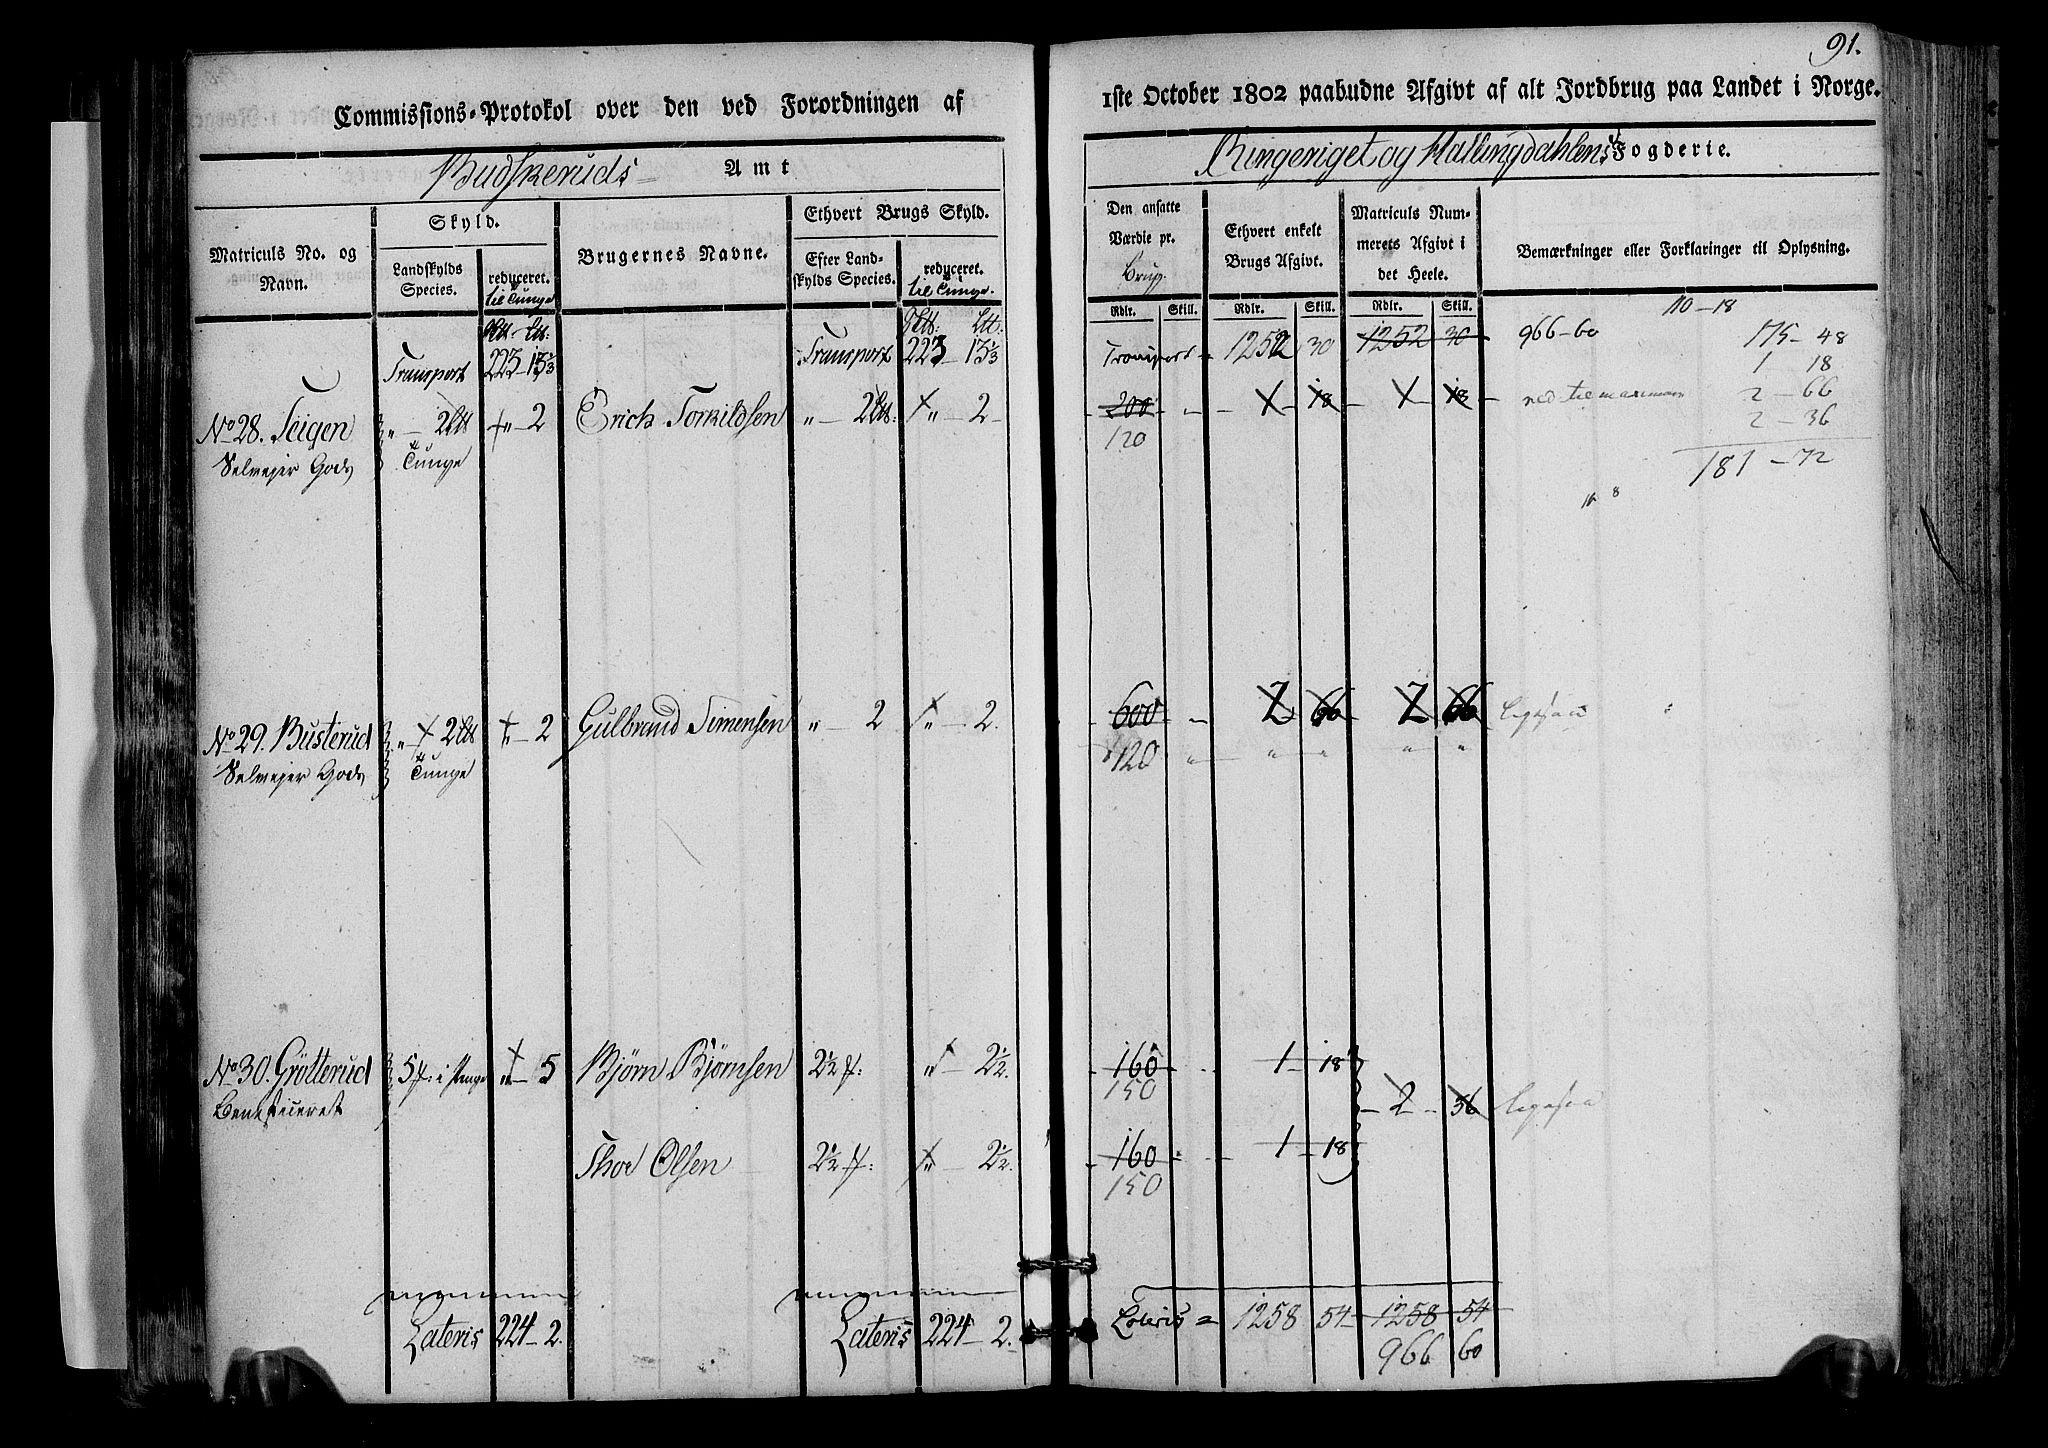 91.
Commissions-Protokol over den ved Forordningen af
1ste October 1802 paabudne Afgivt af alt Jordbrug paa Landet i Norge.
Budskeruds Amt
Ringeriget og Hallingdahlens Fogderie.
Matriculs No. og Navn.
Skyld.
Landskylds Species.
reduceret. til Tunge
Brugernes Navne.
Ethvert Brugs Skyld.
Efter Landskylds Species.
reduceret. til Tunge.
Den ansatte Værdie pr. Brug
Ethvert enkelt Brugs Afgivt.
Matriculs Nummerets Afgivt i det Heele.
Bemærkninger eller Forklaringer til Oplysning.
Rdlr. Skill. Rdlr. Skill. Rdlr. Skill.
Transport 223 - 13 1/3 Transport 223 - 13 1/3
Transport 1252 30 1252 30 966-60
110-18
175-48
1 18
2-66
2-36
181-72
No 28. Teigen " - 2 " - 2 Erich Torkildsen " - 2 " - 2 -
Selveyer Gods Tunge
200 - 1 - 18 - 1 18 -
120
No 29. Busterud " 2 " - 2 Gulbrand Simensen " - 2 " - 2.
Selveyer Gods Tunge
600 - 2 66 2 66
120 " " " " "
No 30. Grötterud 5 " - 5 Bjørn Bjørnsen 2½ " - 2½.
Beneficeret
160 1 - 18
150
2 - 36
Thor Olsen 2½ " - 2½.
160 1 - 18
150
Lateris 224 - 2. Lateris 224 - 2.
Lateris 1258 54 1258 54
966 60